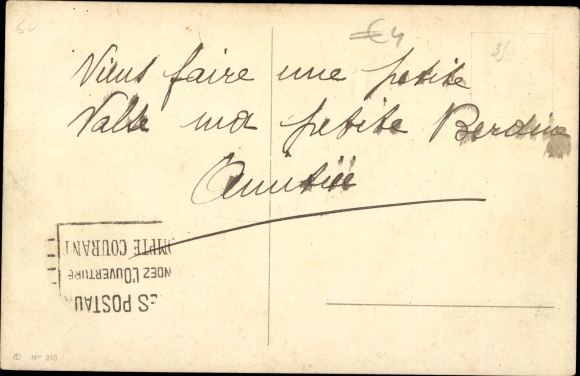 Viens faire une petite
Valse ma petite Berdine
Amitié
€4
3/
ES POSTAU
NDEZ L'OUVERTURE
OMPTE COURANT
Nº 210